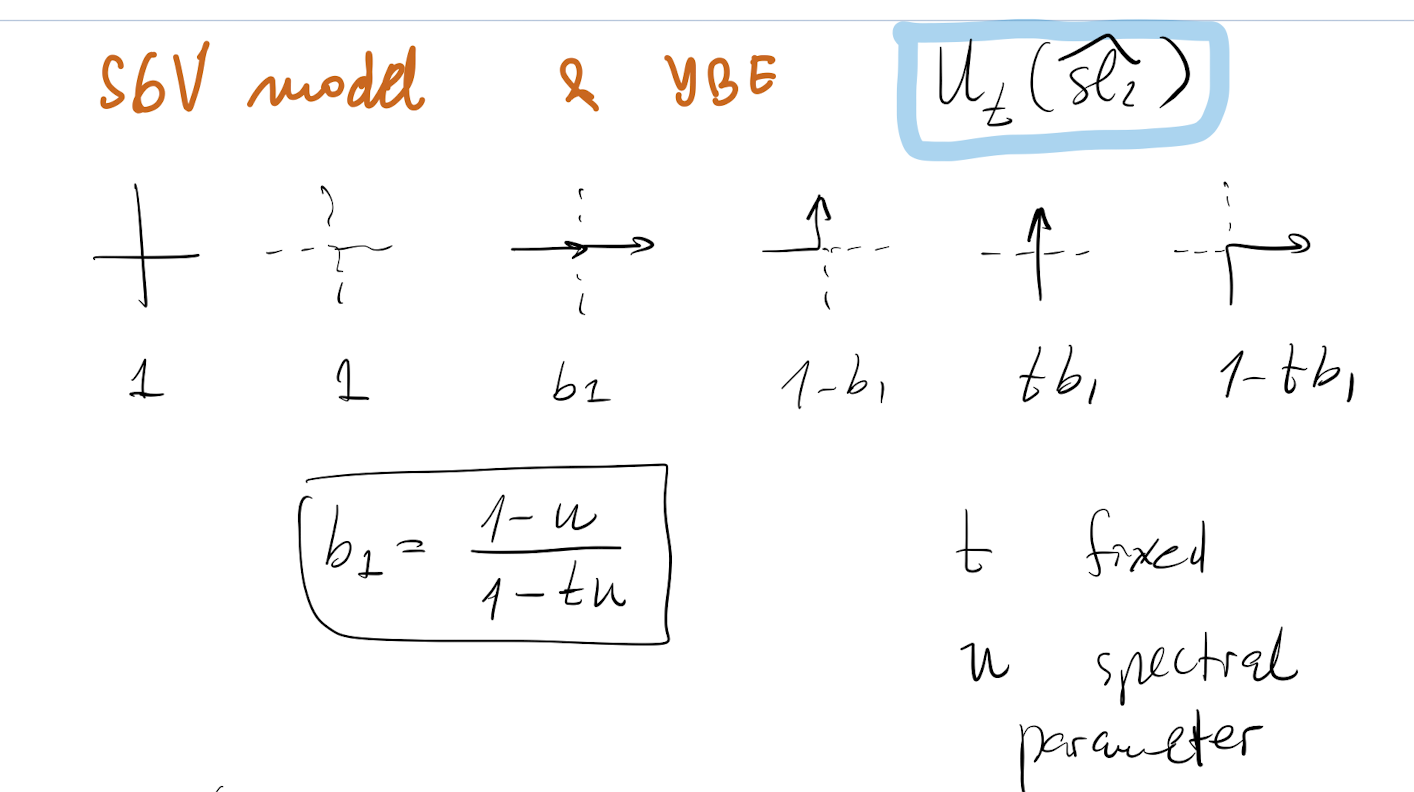 S6V model & YBE U_t(\widehat{sl}_2)
1 1 b1 1-b1 tb1 1-tb1
b1 = \frac{1-u}{1-tu}
t fixed
u spectral
parameter